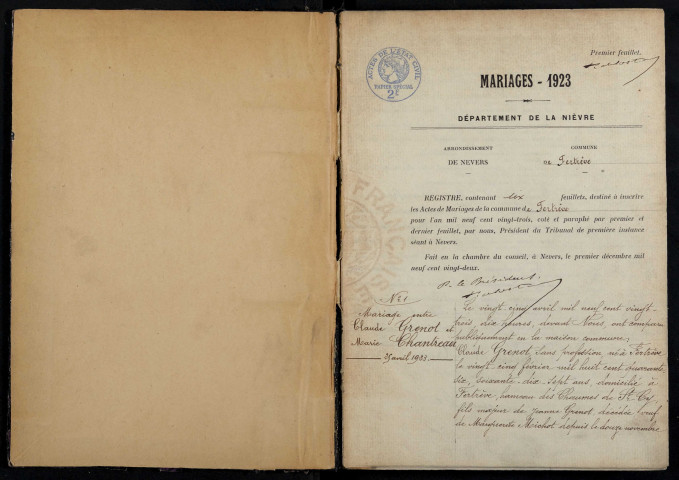 Premier feuillet.
ACTES DE L'ÉTAT CIVIL
PAPIER SPÉCIAL
2F
MARIAGES - 1923
DÉPARTEMENT DE LA NIÈVRE
ARRONDISSEMENT
DE NEVERS
COMMUNE
de Fertrève
REGISTRE, contenant six feuillets, destiné à inscrire
les Actes de Mariages de la commune de Fertrève
pour l'an mil neuf cent vingt-trois, coté et paraphé par premier et
dernier feuillet, par nous, Président du Tribunal de première instance
séant à Nevers.
Fait en la chambre du conseil, à Nevers, le premier décembre mil
neuf cent vingt-deux.
P. le Président.
N° 1
Mariage entre
Claude Grenot et
Marie Chantreau
25 avril 1923.
Le vingt-cinq avril mil neuf cent vingt-
trois dix heures, devant Nous, ont comparu
publiquement en la maison commune;
Claude Grenot, sans profession, né à Fertrève
le vingt-cinq février mil huit cent quarante
six, soixante-dix-sept ans, domicilié à
Fertrève, hameau des Chaumes de St-Cy,
fils majeur de Jeanne Grenot, décédée, veuf
de Marguerite Michot depuis le douze novembre